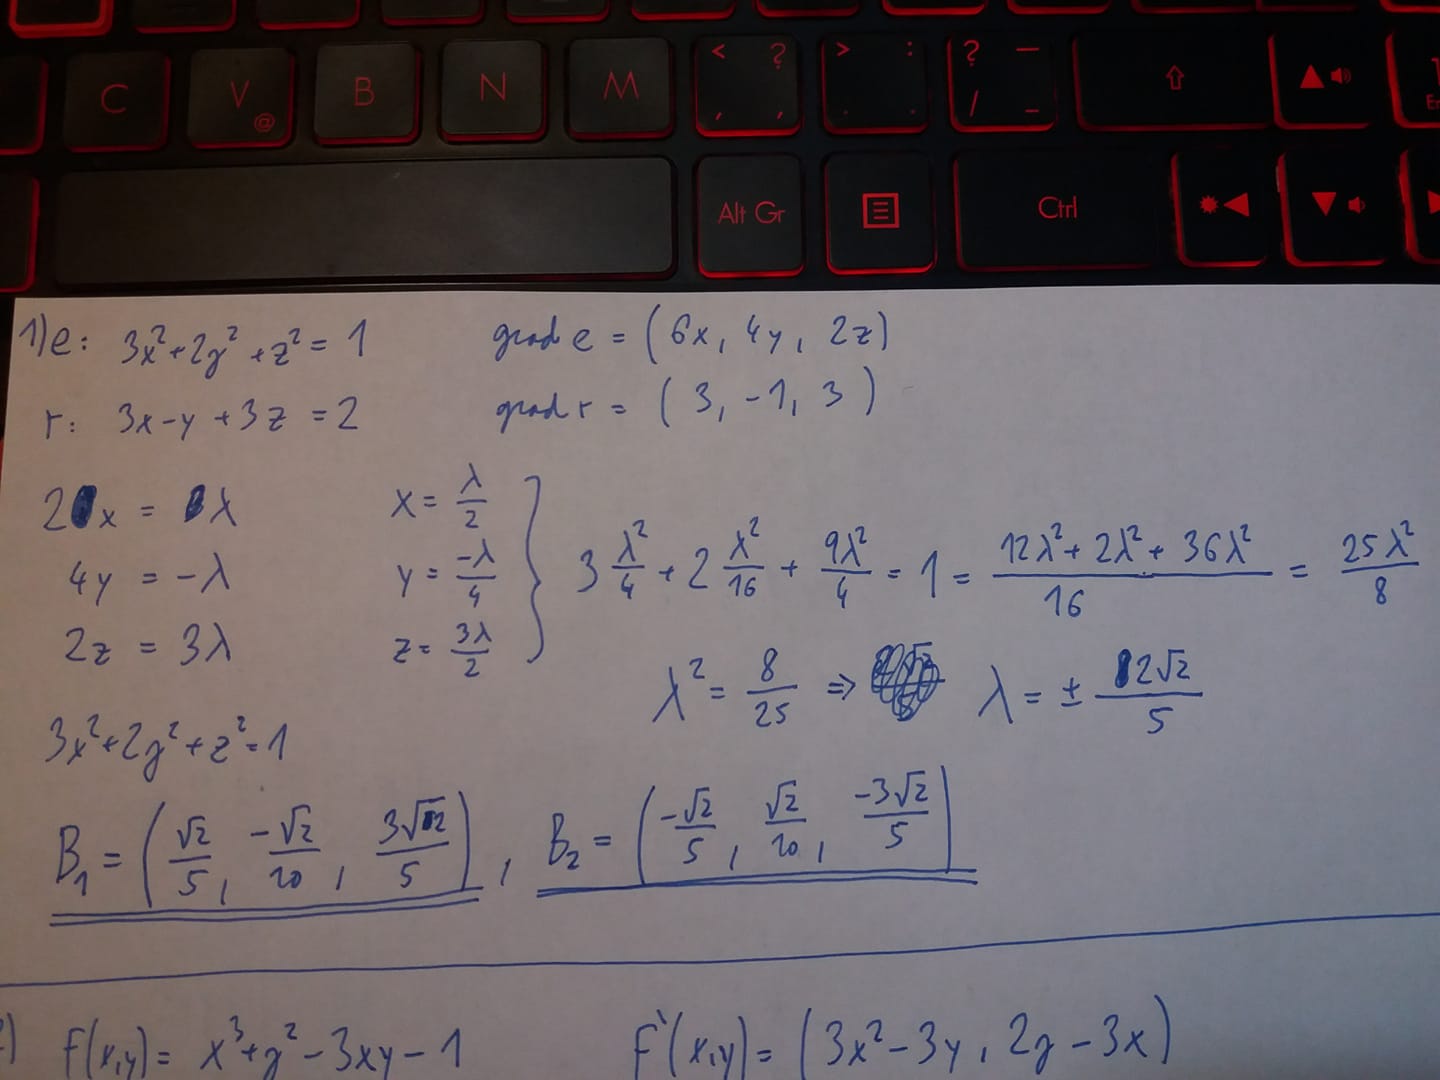 C V @ B N M < ? , , > : . . ? — / _ ⇧ ▲
Alt Gr Ctrl ◀ ▼
1) e: 3x² + 2y² + z² = 1 grad e = (6x, 4y, 2z)
r: 3x - y + 3z = 2 grad r = (3, -1, 3)
2x = λ x = λ/2
4y = -λ y = -λ/4
2z = 3λ z = 3λ/2
3 λ²/4 + 2 λ²/16 + 9λ²/4 = 1 = (12λ² + 2λ² + 36λ²)/16 = 25λ²/8
λ² = 8/25 ⇒ λ = ± 2√2/5
3x² + 2y² + z² = 1
B₁ = (√2/5, -√2/10, 3√2/5), B₂ = (-√2/5, √2/10, -3√2/5)
) f(x,y) = x³ + y² - 3xy - 1 f'(x,y) = (3x² - 3y, 2y - 3x)